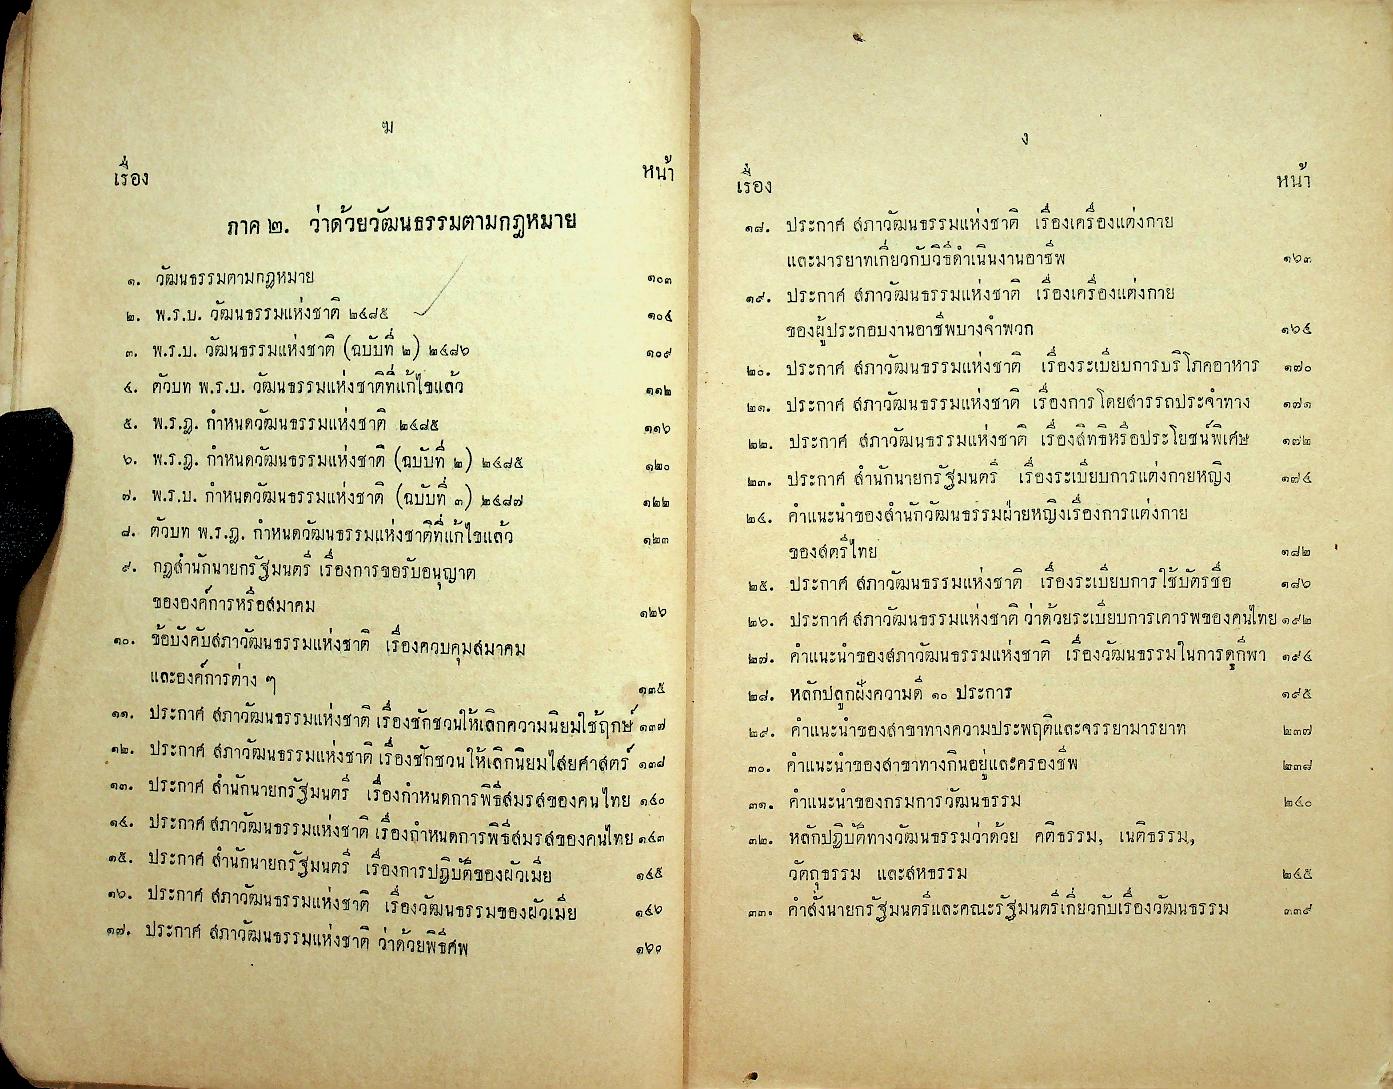 ฆ
เรื่อง หน้า
ภาค ๒. ว่าด้วยวัฒนธรรมตามกฎหมาย
๑. วัฒนธรรมตามกฎหมาย ๑๐๓
๒. พ.ร.บ. วัฒนธรรมแห่งชาติ ๒๔๘๕ ๑๐๔
๓. พ.ร.บ. วัฒนธรรมแห่งชาติ (ฉบับที่ ๒) ๒๔๘๖ ๑๐๙
๔. ตัวบท พ.ร.บ. วัฒนธรรมแห่งชาติที่แก้ไขแล้ว ๑๑๒
๕. พ.ร.ฎ. กำหนดวัฒนธรรมแห่งชาติ ๒๔๘๕ ๑๑๖
๖. พ.ร.ฎ. กำหนดวัฒนธรรมแห่งชาติ (ฉบับที่ ๒) ๒๔๘๕ ๑๒๐
๗. พ.ร.บ. กำหนดวัฒนธรรมแห่งชาติ (ฉบับที่ ๓) ๒๔๘๗ ๑๒๒
๘. ตัวบท พ.ร.ฎ. กำหนดวัฒนธรรมแห่งชาติที่แก้ไขแล้ว ๑๒๓
๙. กฎสำนักนายกรัฐมนตรี เรื่องการขอรับอนุญาต
ขององค์การหรือสมาคม ๑๒๖
๑๐. ข้อบังคับสภาวัฒนธรรมแห่งชาติ เรื่องควบคุมสมาคม
และองค์การต่าง ๆ ๑๓๕
๑๑. ประกาศ สภาวัฒนธรรมแห่งชาติ เรื่องชักชวนให้เลิกความนิยมใช้ฤกษ์ ๑๓๗
๑๒. ประกาศ สภาวัฒนธรรมแห่งชาติ เรื่องชักชวนให้เลิกนิยมไสยศาสตร์ ๑๓๘
๑๓. ประกาศ สำนักนายกรัฐมนตรี เรื่องกำหนดการพิธีสมรสของคนไทย ๑๔๐
๑๔. ประกาศ สภาวัฒนธรรมแห่งชาติ เรื่องกำหนดการพิธีสมรสของคนไทย ๑๔๓
๑๕. ประกาศ สำนักนายกรัฐมนตรี เรื่องการปฏิบัติของผัวเมีย ๑๔๕
๑๖. ประกาศ สภาวัฒนธรรมแห่งชาติ เรื่องวัฒนธรรมของผัวเมีย ๑๔๖
๑๗. ประกาศ สภาวัฒนธรรมแห่งชาติ ว่าด้วยพิธีศพ ๑๖๐
ง
เรื่อง หน้า
๑๘. ประกาศ สภาวัฒนธรรมแห่งชาติ เรื่องเครื่องแต่งกาย
และมารยาทเกี่ยวกับวิธีดำเนินงานอาชีพ ๑๖๓
๑๙. ประกาศ สภาวัฒนธรรมแห่งชาติ เรื่องเครื่องแต่งกาย
ของผู้ประกอบงานอาชีพบางจำพวก ๑๖๕
๒๐. ประกาศ สภาวัฒนธรรมแห่งชาติ เรื่องระเบียบการบริโภคอาหาร ๑๗๐
๒๑. ประกาศ สภาวัฒนธรรมแห่งชาติ เรื่องการโดยสารรถประจำทาง ๑๗๑
๒๒. ประกาศ สภาวัฒนธรรมแห่งชาติ เรื่องสิทธิหรือประโยชน์พิเศษ ๑๗๒
๒๓. ประกาศ สำนักนายกรัฐมนตรี เรื่องระเบียบการแต่งกายหญิง ๑๗๔
๒๔. คำแนะนำของสำนักวัฒนธรรมฝ่ายหญิงเรื่องการแต่งกาย
ของสตรีไทย ๑๘๒
๒๕. ประกาศ สภาวัฒนธรรมแห่งชาติ เรื่องระเบียบการใช้บัตรชื่อ ๑๘๖
๒๖. ประกาศ สภาวัฒนธรรมแห่งชาติ ว่าด้วยระเบียบการเคารพของคนไทย ๑๙๒
๒๗. คำแนะนำของสภาวัฒนธรรมแห่งชาติ เรื่องวัฒนธรรมในการดูกีฬา ๑๙๔
๒๘. หลักปลูกฝังความดี ๑๐ ประการ ๑๙๕
๒๙. คำแนะนำของสาขาทางความประพฤติและจรรยามารยาท ๒๓๗
๓๐. คำแนะนำของสาขาทางกินอยู่และครองชีพ ๒๓๘
๓๑. คำแนะนำของกรมการวัฒนธรรม ๒๔๐
๓๒. หลักปฏิบัติทางวัฒนธรรมว่าด้วย คติธรรม, เนติธรรม,
วัตถุธรรม และสหธรรม ๒๔๕
๓๓. คำสั่งนายกรัฐมนตรีและคณะรัฐมนตรีเกี่ยวกับเรื่องวัฒนธรรม ๓๓๙